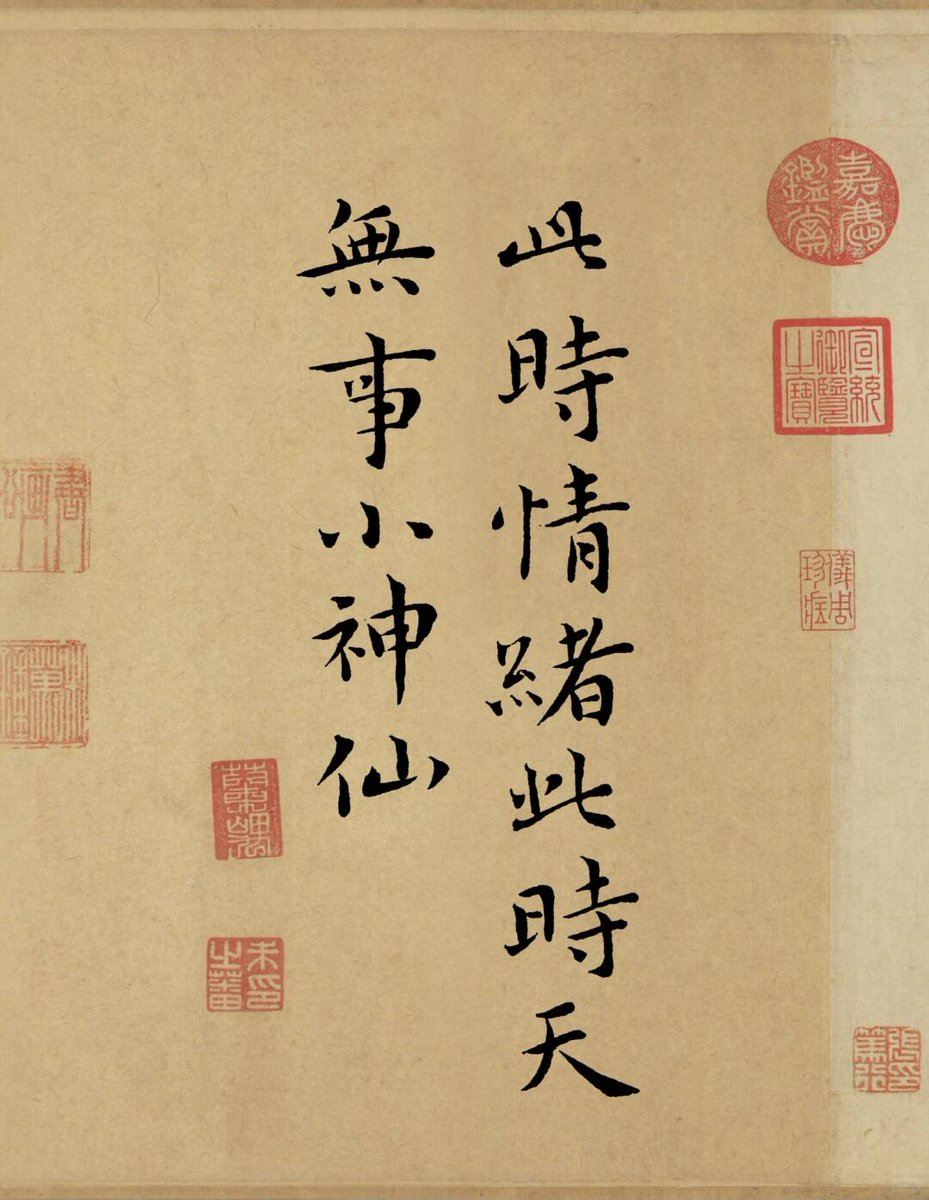 此時情緒此時天
無事小神仙
嘉慶鑑賞
宣統御覽之寶
儀周珍藏